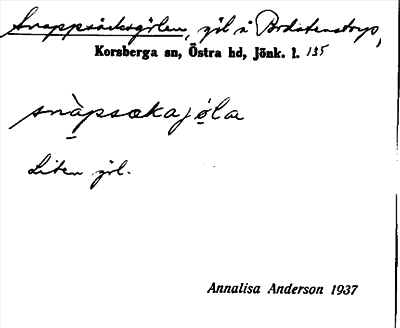 Snappsäcksgölen, göl å Bordstenstorp,
Korsberga sn, Östra hd, Jönk. l. 135
snàpsækajøla
Liten göl.
Annalisa Anderson 1937